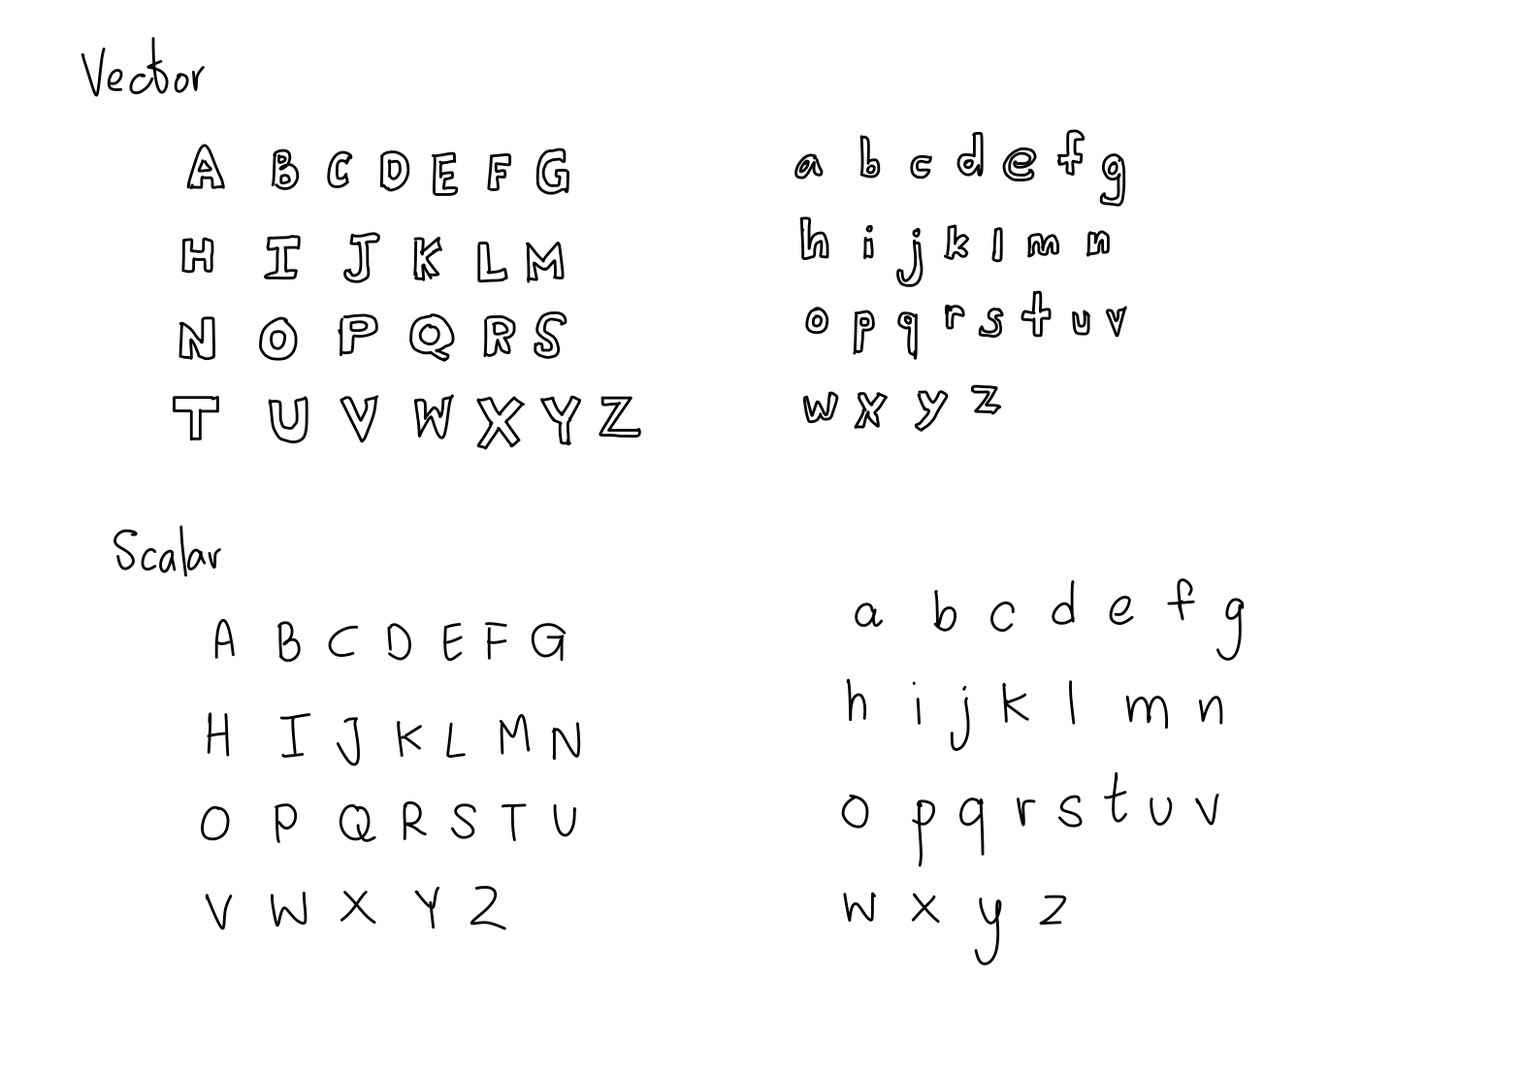 Vector
A B C D E F G
H I J K L M
N O P Q R S
T U V W X Y Z
a b c d e f g
h i j k l m n
o p q r s t u v
w x y z
Scalar
A B C D E F G
H I J K L M N
O P Q R S T U
V W X Y Z
a b c d e f g
h i j k l m n
o p q r s t u v
w x y z